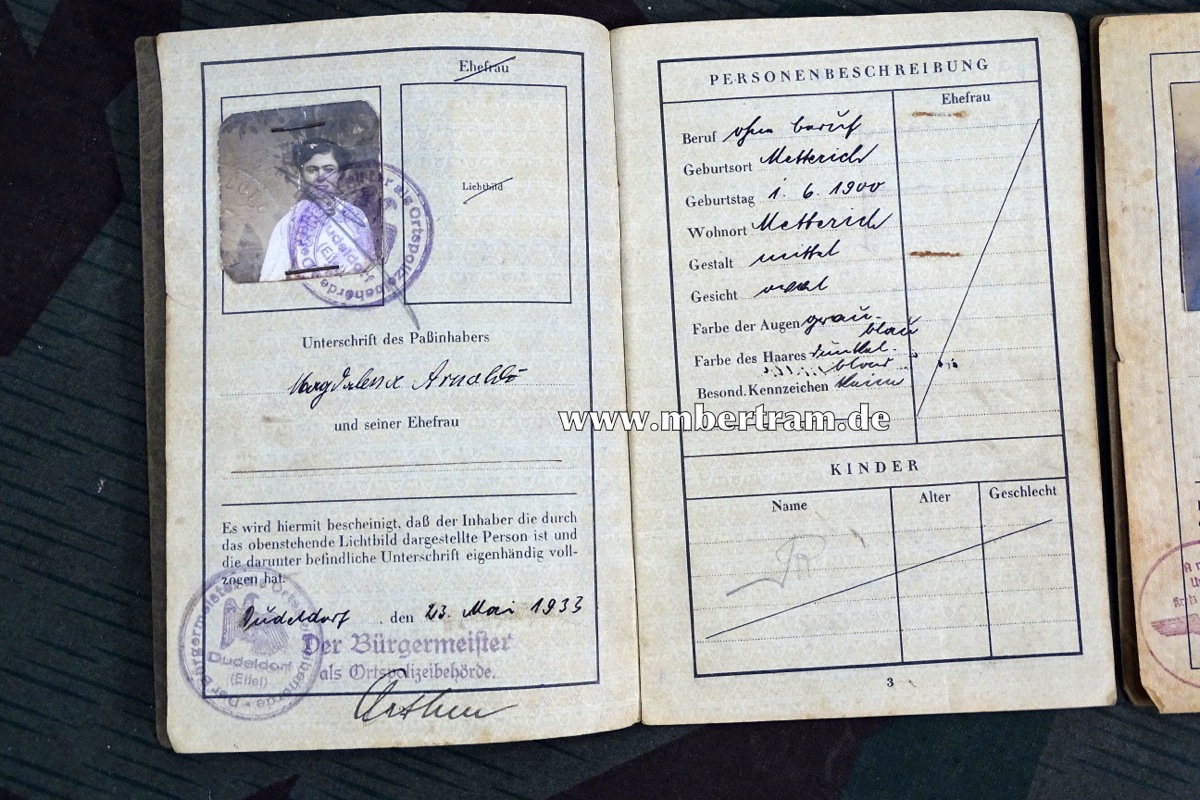 Ehefrau
Lichtbild
Der Bürgermeister als Ortspolizeibehörde
Dudeldorf
(Eifel)
Unterschrift des Paßinhabers
Magdalena Arnoldi
und seiner Ehefrau
Es wird hiermit bescheinigt, daß der Inhaber die durch
das obenstehende Lichtbild dargestellte Person ist und
die darunter befindliche Unterschrift eigenhändig voll-
zogen hat.
Dudeldorf, den 23. Mai 1933
Der Bürgermeister
als Ortspolizeibehörde.
Der Bürgermeister als Ortspolizeibehörde
Dudeldorf
(Eifel)
PERSONENBESCHREIBUNG
Ehefrau
Beruf ohne beruf
Geburtsort Metterich
Geburtstag 1. 6. 1900
Wohnort Metterich
Gestalt mittel
Gesicht oval
Farbe der Augen grau-
blau
Farbe des Haares dunkel-
blond
Besond. Kennzeichen keine
KINDER
Name Alter Geschlecht
3
www.mbertram.de